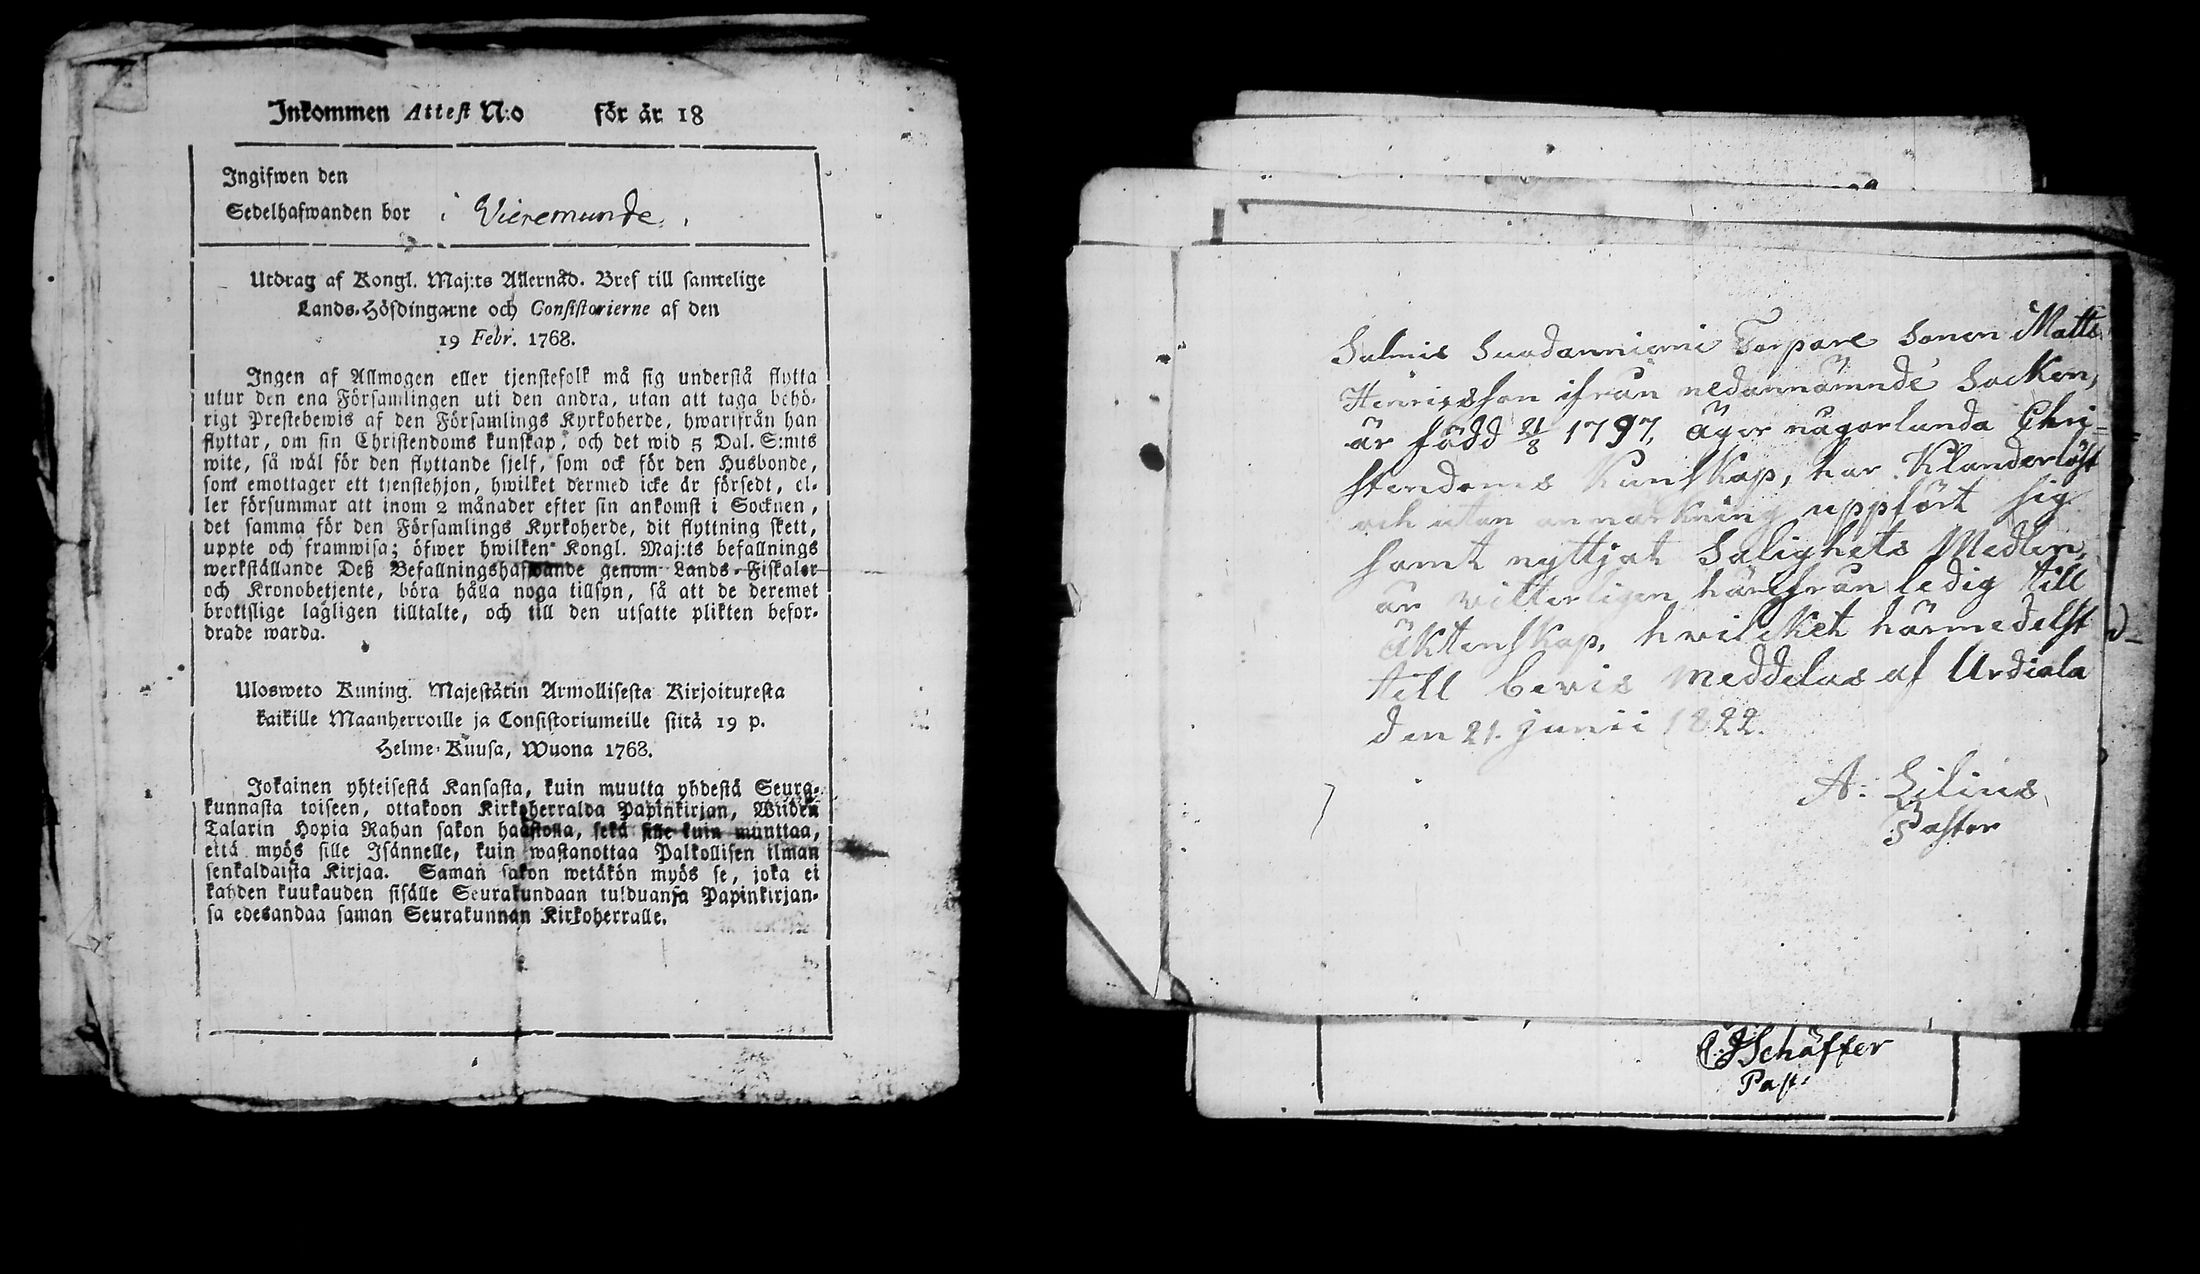 Inkommen Attest N:o för år 18
Ingifwen den
Sedelhafwanden bor i Vieremunde.
Utdrag af Kongl. Maj:ts Allernåd. Bref till samtelige
Lands-Höfdingarne och Consistorierne af den
19 Febr. 1768.
Ingen af Allmogen eller tjenstefolk må sig understå flytta
utur den ena Församlingen uti den andra, utan att taga behö-
rigt Prestebewis af den Församlings Kyrkoherde, hwarifrån han
flyttar, om sin Christendoms kunskap, och det wid 5 Dal. S:mts
wite, så wäl för den flyttande sjelf, som ock för den Husbonde,
som emottager ett tjenstehjon, hwilket dermed icke är försedt, el-
ler försummar att inom 2 månader efter sin ankomst i Socknen,
det samma för den Församlings Kyrkoherde, dit flyttning skett,
uppte och framwisa; öfwer hwilken Kongl. Maj:ts befallnings
werkställande Deß Befallningshafwande genom Lands-Fiskaler
och Kronobetjente, böra hålla noga tillsyn, så att de deremot
brotislige lagligen tilltalte, och till den utsatte plikten befor-
drade warda.
Ulosweto Kuning. Majestätin Armollisesta Kirjoituxesta
kaikille Maanherroille ja Consistoriumeille siitä 19 p.
Helme-Kuusa, Wuona 1768.
Jokainen yhteisestä Kansasta, kuin muutta yhdestä Seura-
kunnasta toiseen, ottakoon Kirkoherralda Papinkirjan, Wiiden
Talarin Hopia Rahan sakon haastolla, sekä sille kuin muuttaa,
että myös sille Isännelle, kuin wastanottaa Palkollisen ilman
senkaldaista Kirjaa. Saman sakon wetäkön myös se, joka ei
kahden kuukauden sisälle Seurakundaan tulduansa Papinkirjan-
sa edesandaa saman Seurakunnan Kirkoherralle.
Salmis Torpare Sonen Matts
Henricsson ifrån nedannämnde Socken,
är född 21/8 1797, äger någorlunda Chri-
stendoms Kunskap, har Klanderlöst
och utan anmärkning uppfört sig
samt nyttjat Salighets Medlen,
är vitterligen härifrån ledig till
äktenskap, hvilcket härmedelst
till bevis meddelas af Urdiala
den 21. junii 1822.
A: Lilius
Pastor
C:J Schäffer
Past: